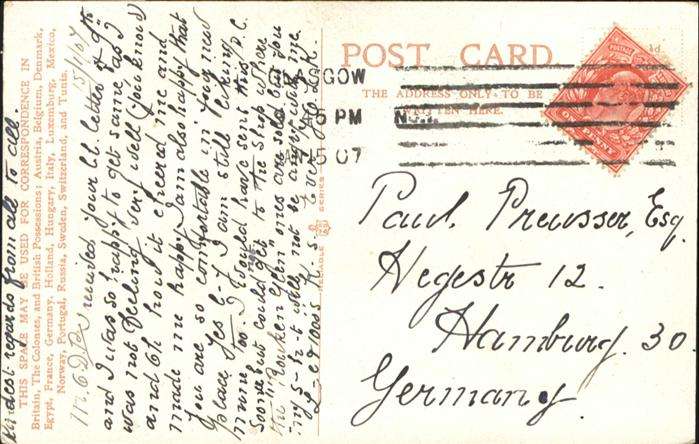 THIS SPACE MAY BE USED FOR CORRESPONDENCE IN
Britain, The Colonies, and British Possessions; Austria, Belgium, Denmark,
Egypt, France, Germany, Holland, Hungary, Italy, Luxemburg, Mexico,
Norway, Portugal, Russia, Sweden, Switzerland, and Tunis.
15/1/07
received your ll. letter & 
and I was so happy to get same as I
was not feeling very well (you know)
and Oh how it cheered me and
made me happy. I am also happy that
you are so comfortable in your new
place. Yes I am still liking
mine too. I would have sent this P.C.
sooner but could get to the Shop where
the ones are sold but you
my will not be angry with me.
Kindest regards from all to all.
POST CARD
THE ADDRESS ONLY TO BE
WRITTEN HERE.
GLASGOW
PM
15 07
SERIES
POSTAGE
ONE PENNY
Paul Preusser, Esq.
Hegestr 12.
Hamburg. 30
Germany.